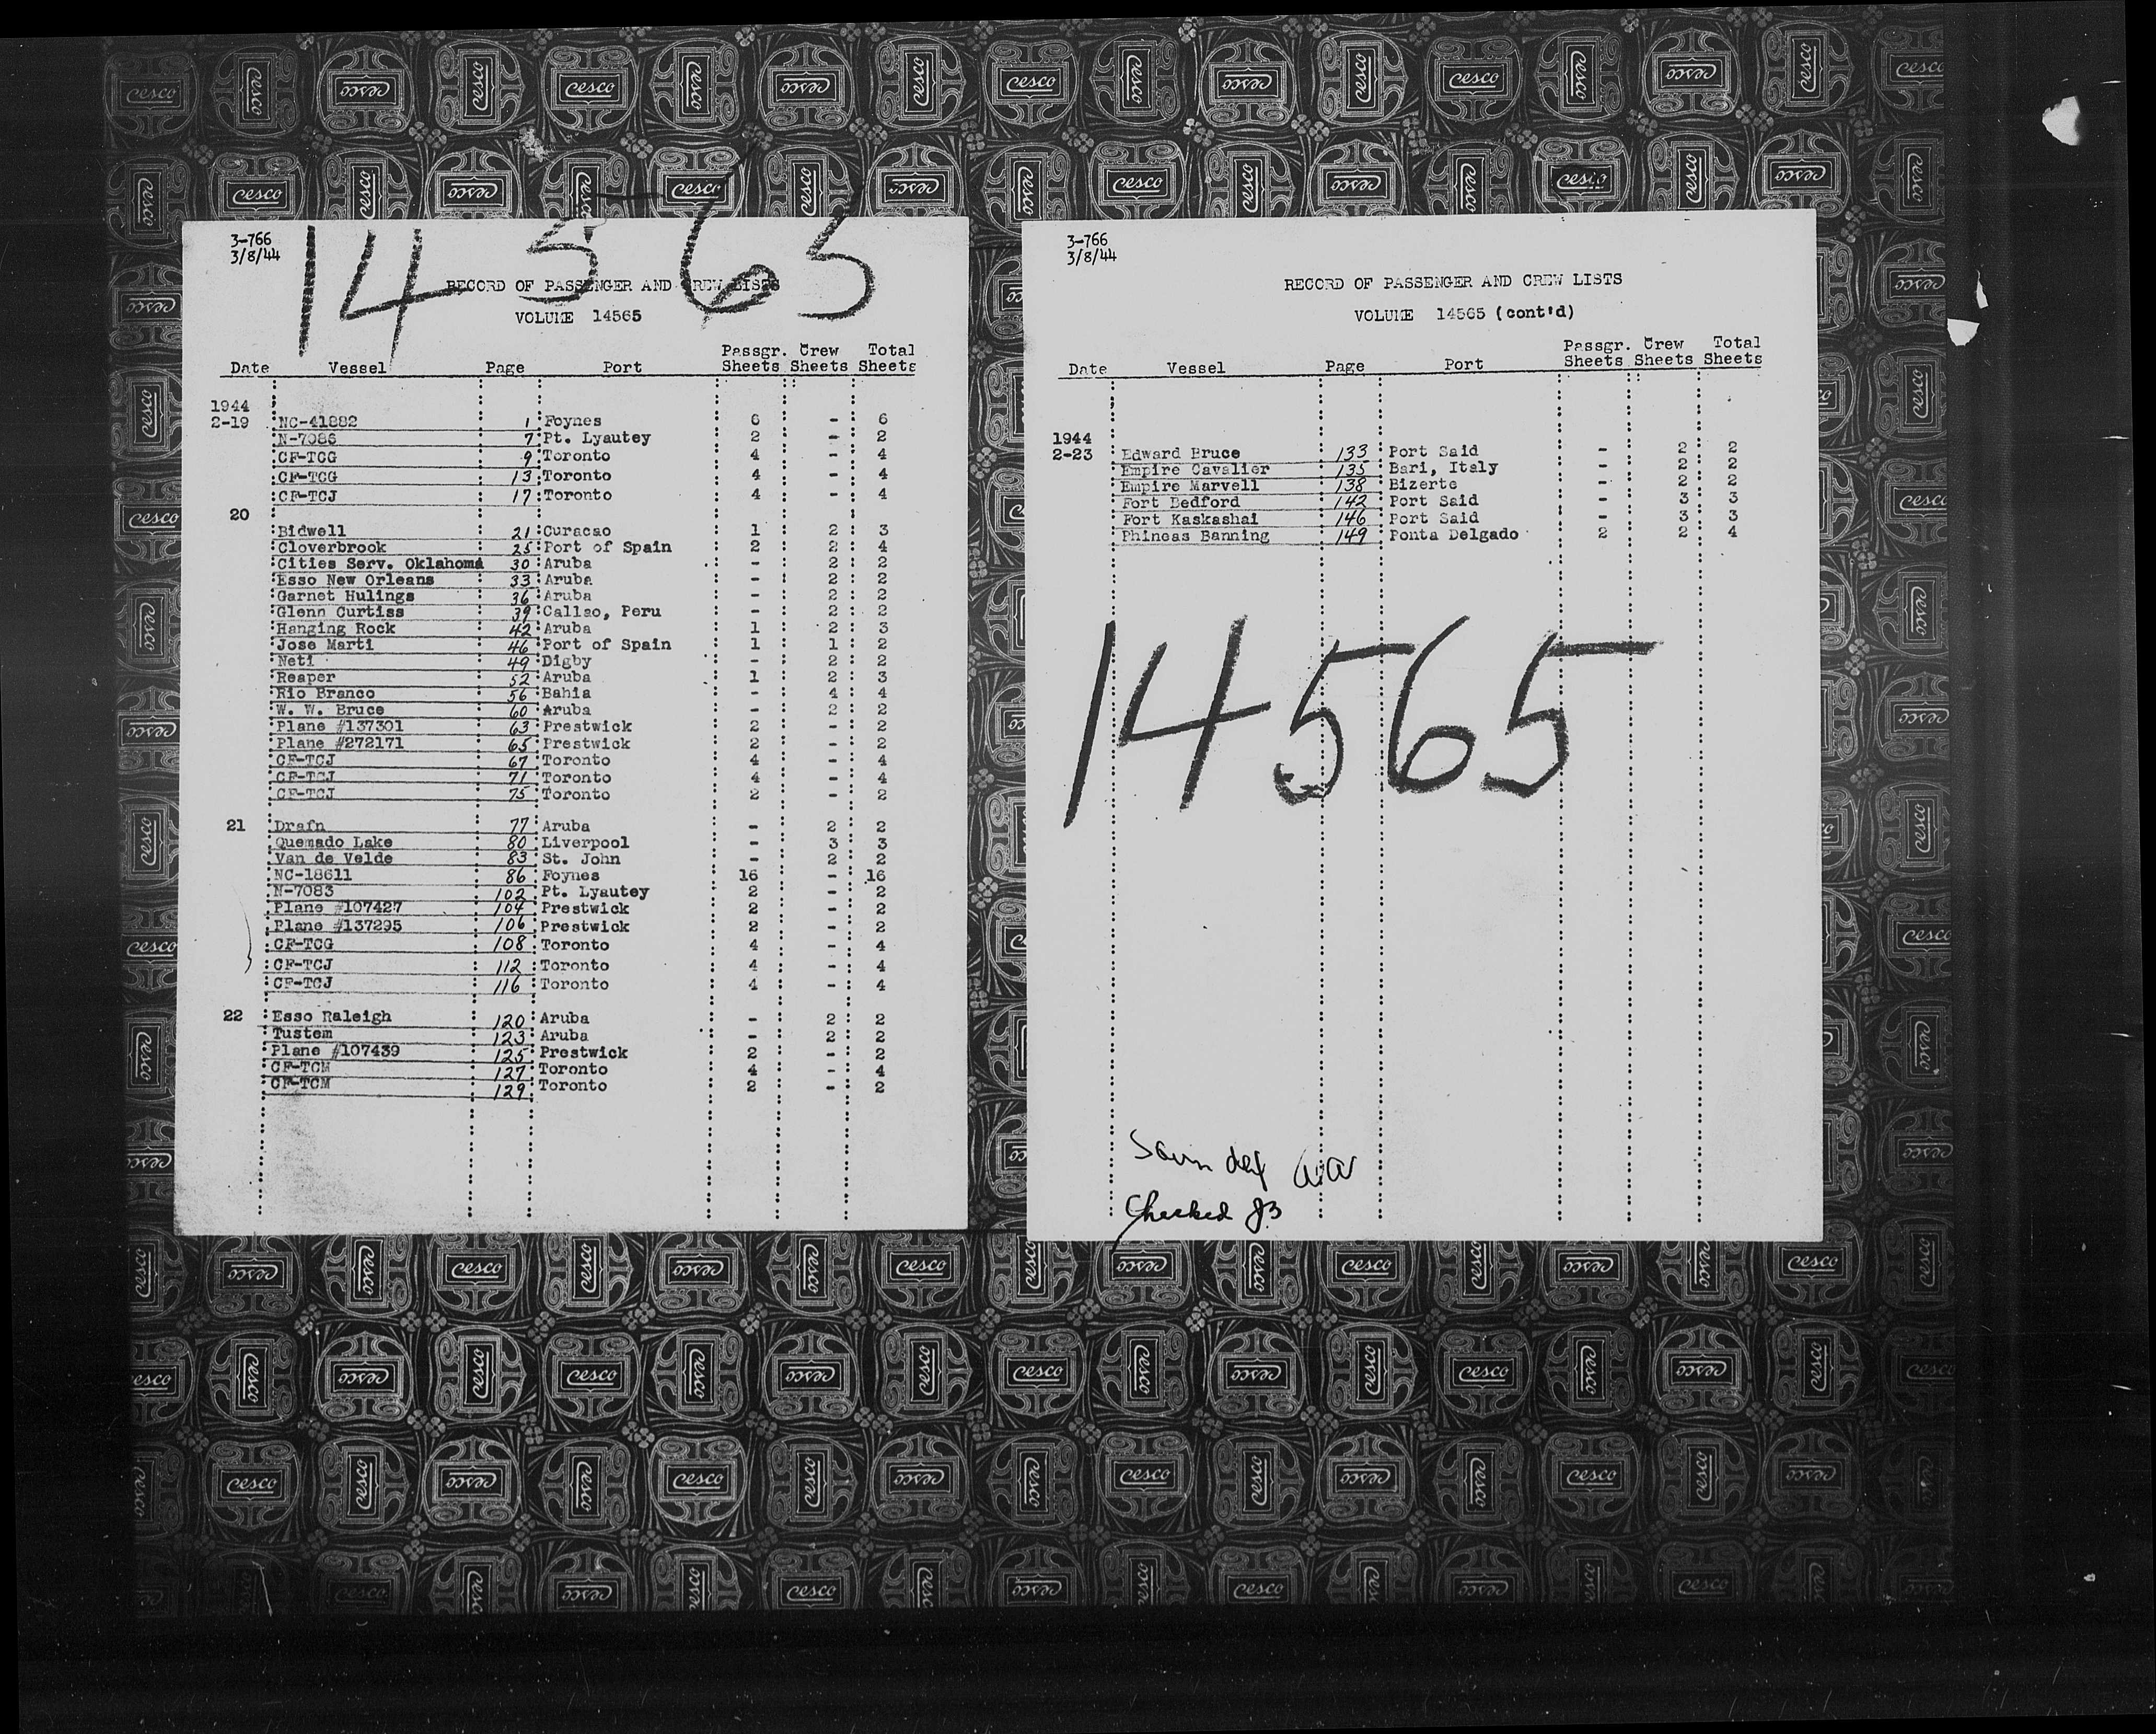 3-766
3/8/44
14565
RECORD OF PASSENGER AND CREW LISTS
VOLUME 14565
Date Vessel Page Port Passgr. Sheets Crew Sheets Total Sheets
1944
2-19 NC-41882 1 Foynes 6 - 6
N-7086 7 Pt. Lyautey 2 - 2
CF-TCG 9 Toronto 4 - 4
CF-TCG 13 Toronto 4 - 4
CF-TCJ 17 Toronto 4 - 4
20
Bidwell 21 Curacao 1 2 3
Cloverbrook 25 Port of Spain 2 2 4
Cities Serv. Oklahoma 30 Aruba - 2 2
Esso New Orleans 33 Aruba - 2 2
Garnet Hulings 36 Aruba - 2 2
Glenn Curtiss 39 Callao, Peru - 2 2
Hanging Rock 42 Aruba 1 2 3
Jose Marti 46 Port of Spain 1 1 2
Neti 49 Digby - 2 2
Reaper 52 Aruba 1 2 3
Rio Branco 56 Bahia - 4 4
W. W. Bruce 60 Aruba - 2 2
Plane #137301 63 Prestwick 2 - 2
Plane #272171 65 Prestwick 2 - 2
CF-TCJ 67 Toronto 4 - 4
CF-TCJ 71 Toronto 4 - 4
CF-TCJ 75 Toronto 2 - 2
21 Drafn 77 Aruba - 2 2
Quemado Lake 80 Liverpool - 3 3
Van de Velde 83 St. John - 2 2
NC-18611 86 Foynes 16 - 16
N-7083 102 Pt. Lyautey 2 - 2
Plane #107427 104 Prestwick 2 - 2
Plane #137295 106 Prestwick 2 - 2
CF-TCG 108 Toronto 4 - 4
CF-TCJ 112 Toronto 4 - 4
CF-TCJ 116 Toronto 4 - 4
22 Esso Raleigh 120 Aruba - 2 2
Tustem 123 Aruba - 2 2
Plane #107439 125 Prestwick 2 - 2
CF-TCM 127 Toronto 4 - 4
CF-TCM 129 Toronto 2 - 2
3-766
3/8/44
RECORD OF PASSENGER AND CREW LISTS
VOLUME 14565 (cont'd)
Date Vessel Page Port Passgr. Sheets Crew Sheets Total Sheets
1944
2-23 Edward Bruce 133 Port Said - 2 2
Empire Cavalier 135 Bari, Italy - 2 2
Empire Marvell 138 Bizerte - 2 2
Fort Bedford 142 Port Said - 3 3
Fort Kaskashai 146 Port Said - 3 3
Phineas Banning 149 Ponta Delgado 2 2 4
14565
Checked JB
cesco